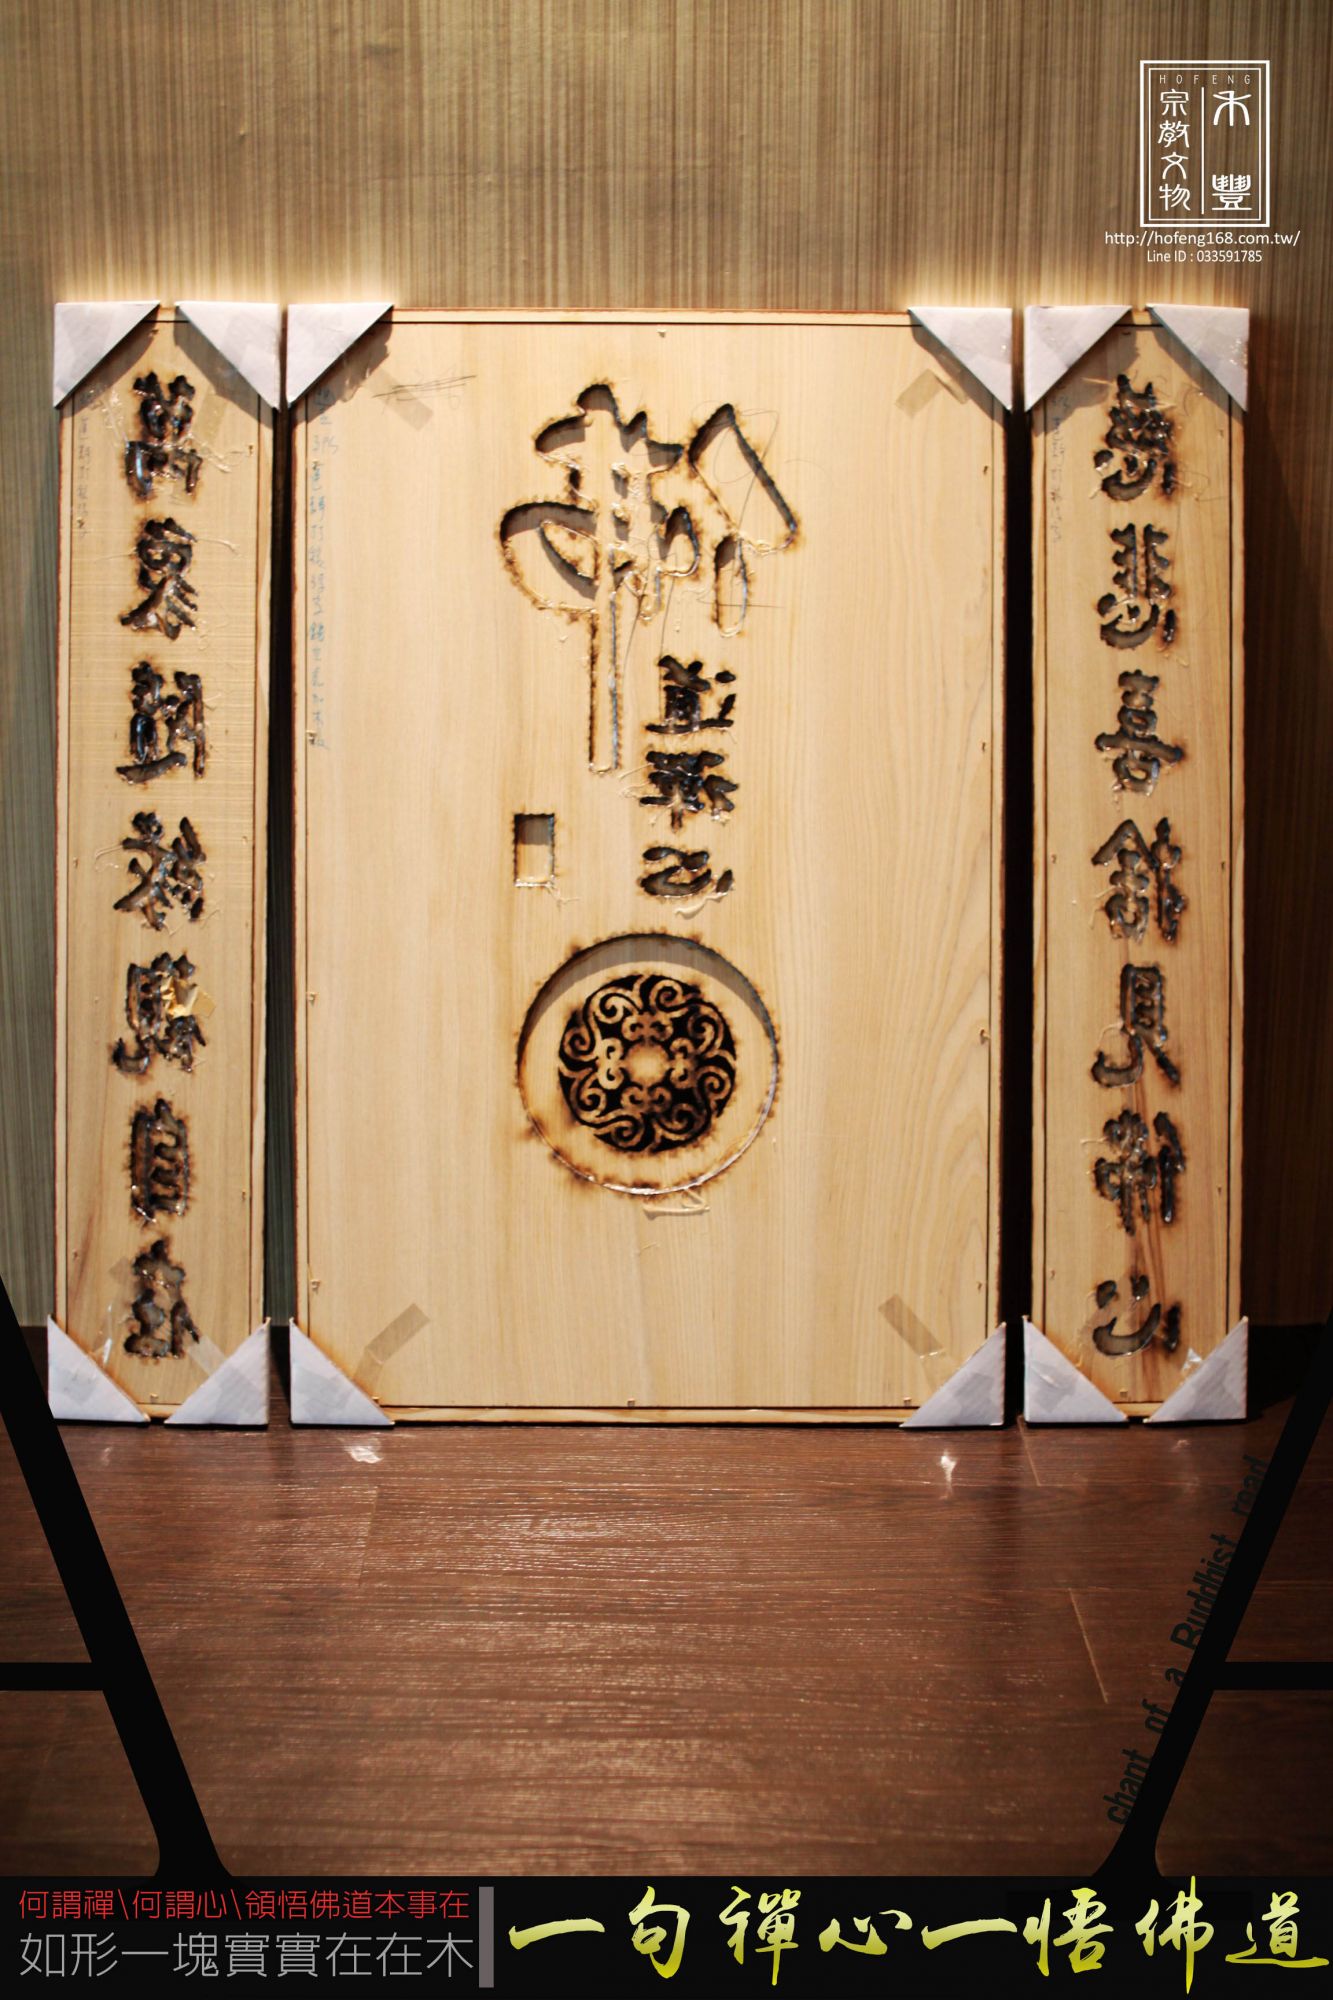 HOFENG
禾豐
宗教文物
http://hofeng168.com.tw/
Line ID : 033591785
慈悲喜捨見心
佛
道禪心
萬自在
chant of a Buddhist read
何謂禪\何謂心\領悟佛道本事在
如形一塊實實在在木
一句禪心一悟佛道